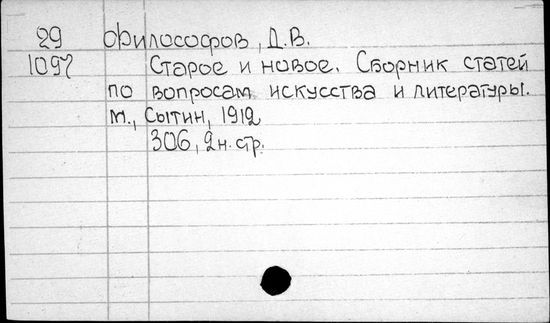 29 Философов, Д.В.
1097 Старое и новое. Сборник статей
по вопросам искусства и литературы.
М., Сытин, 1912
306, 2н. стр.